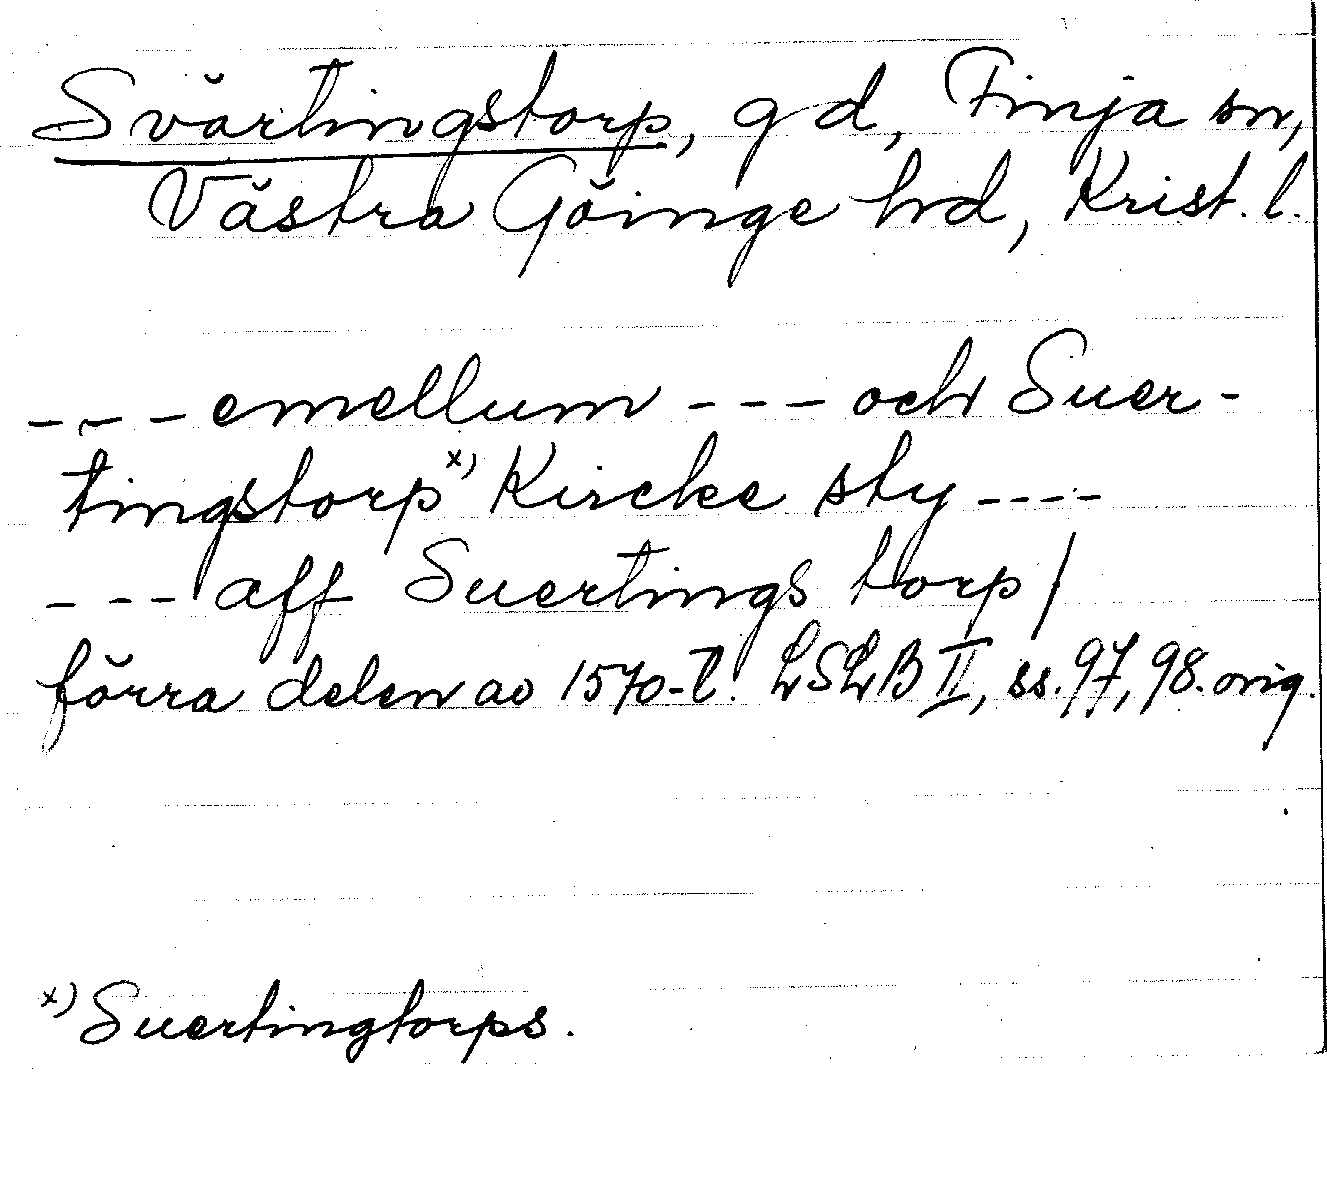 Svärtingstorp, gd, Finja sn,
Västra Göinge hd, Krist. l.
--- emellum --- och Suer-
tingstorp x) Kircke sty ----
--- aff Suertings torp /
förra delen av 1570-t. LSLB II, ss. 97, 98. orig.
x) Suertingtorps.